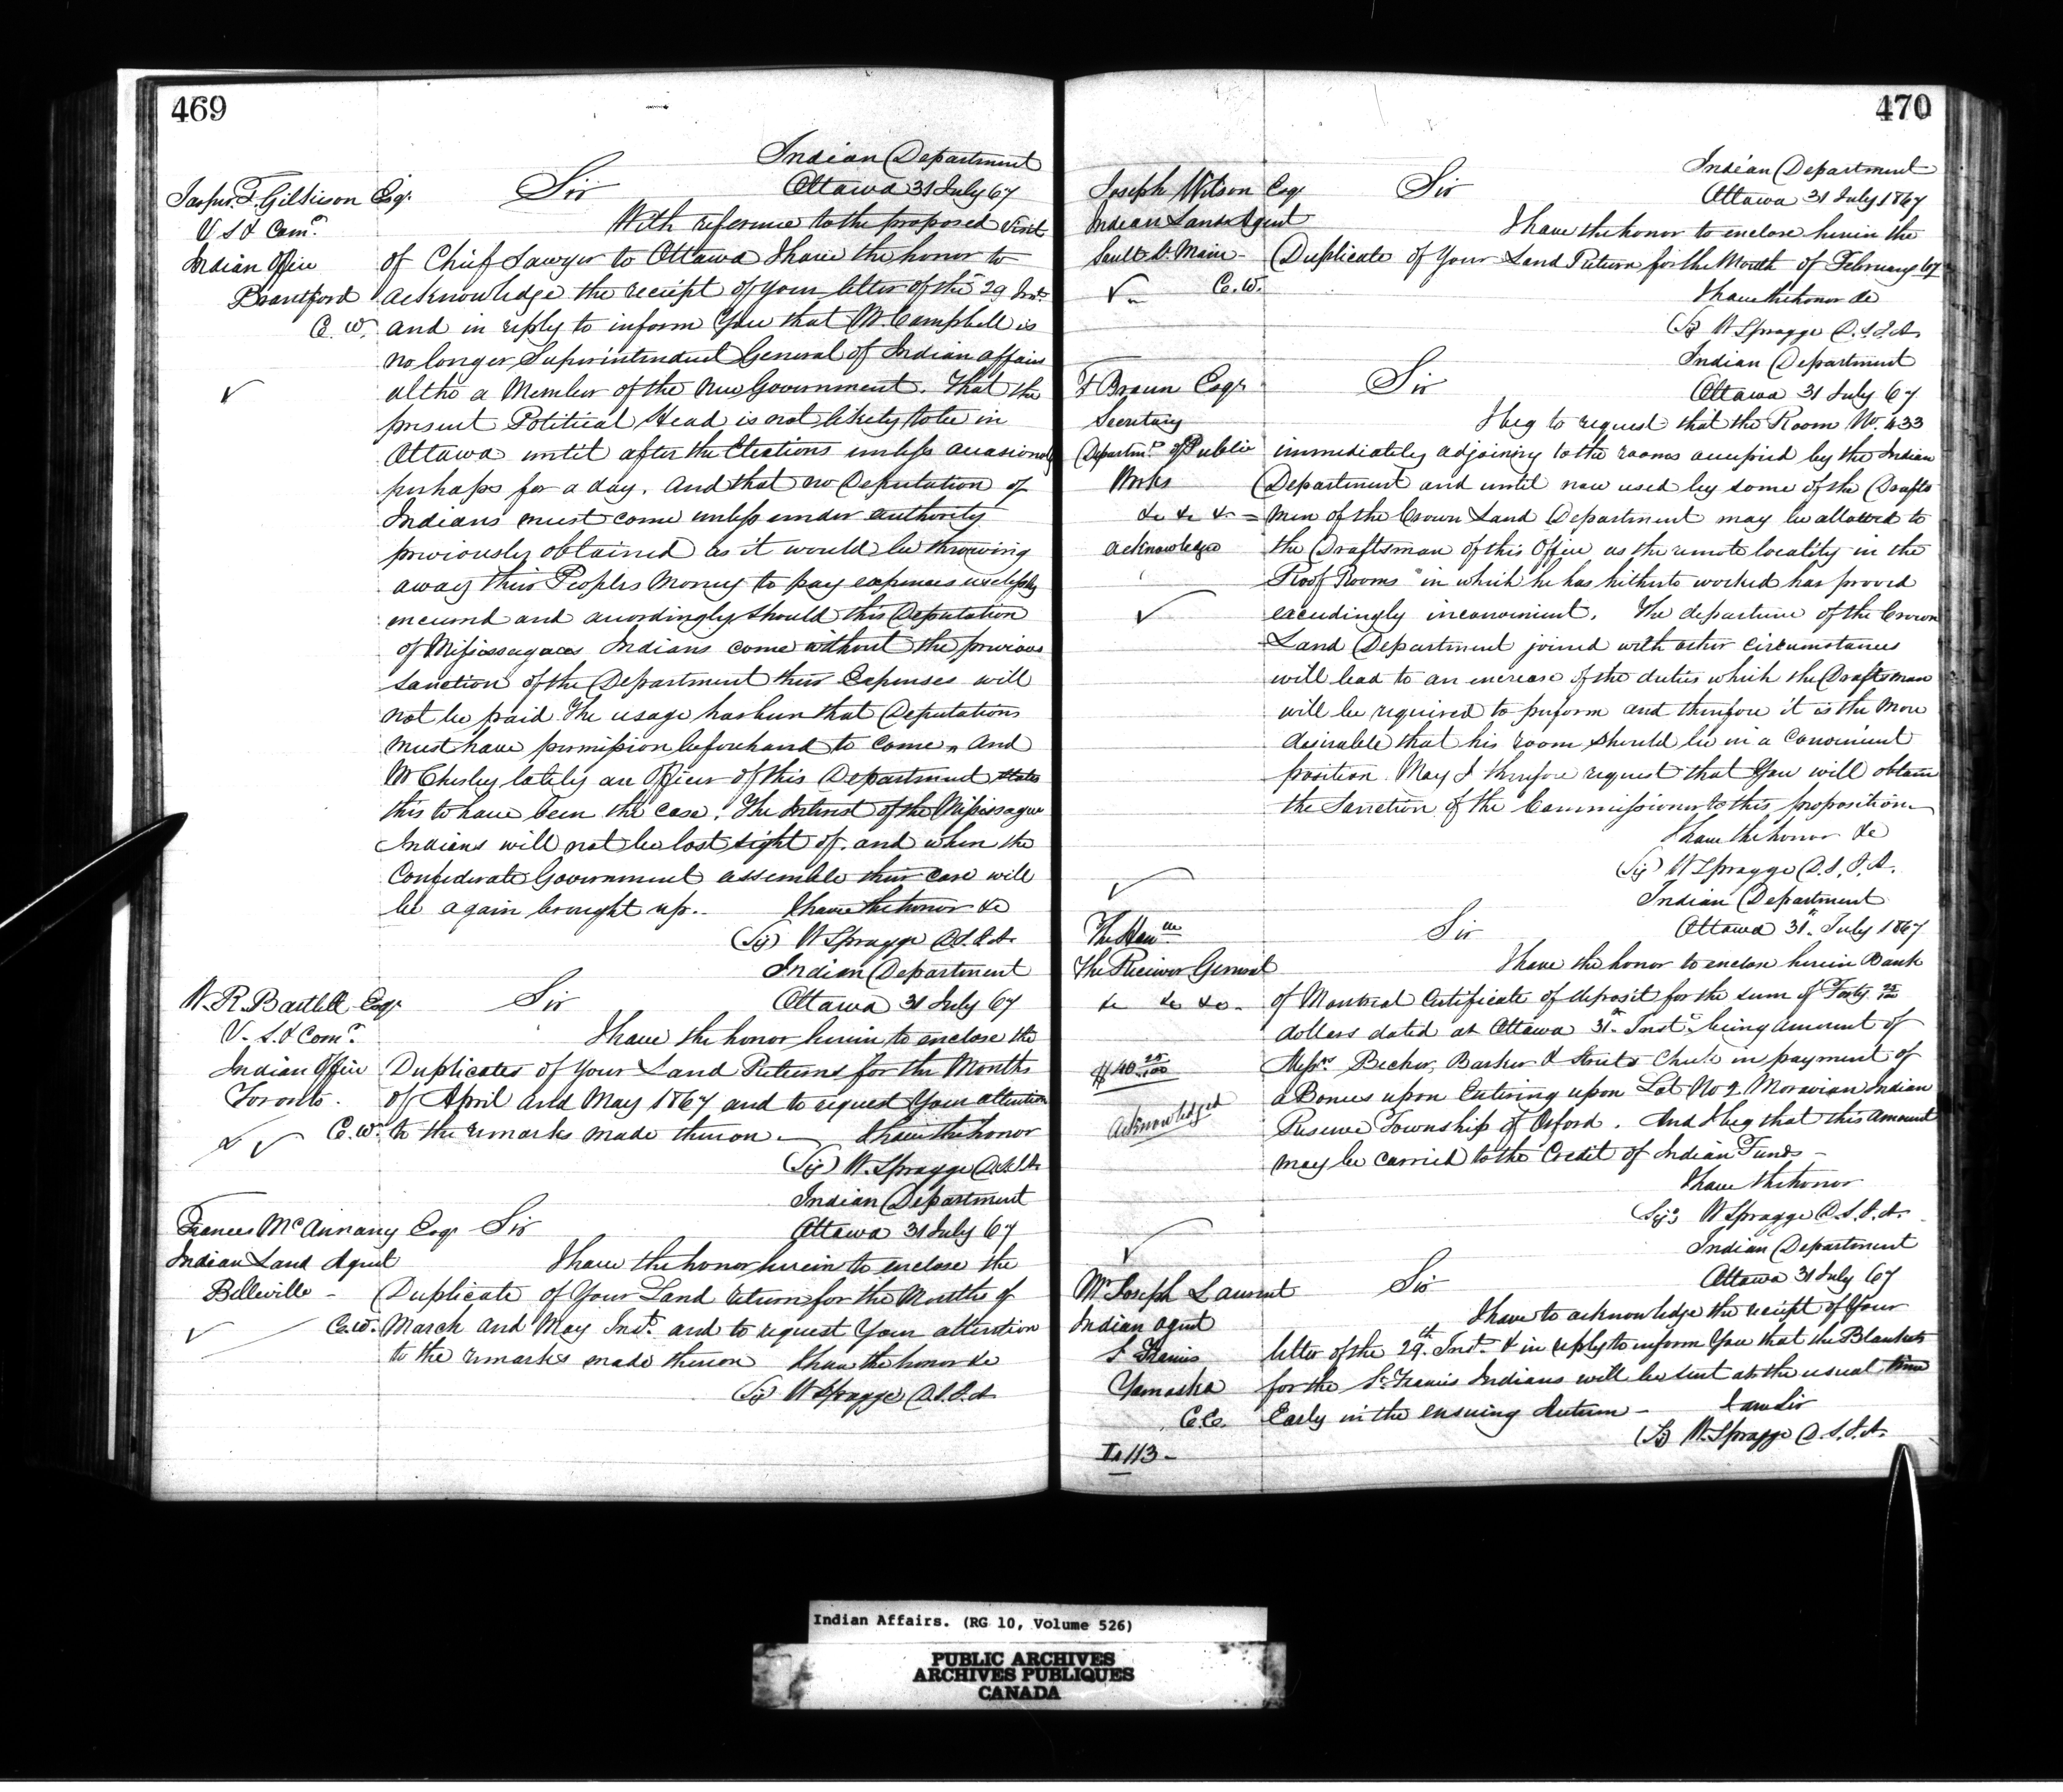 469
Indian Department
Jasper T. Gilkison Esqr. Sir Ottawa 31 July 67
V S & Comr. With reference to the proposed visit
Indian Office of Chief Sawyer to Ottawa I have the honor to
Brantford acknowledge the receipt of your letter of the 29 Inst.
C. W. and in reply to inform you that Mr. Campbell is
no longer Superintendent General of Indian affairs
altho a Member of the new Government. That the
present Political Head is not likely to be in
Ottawa until after the Elections unless occasionally
perhaps for a day. And that no Deputation of
Indians must come unless under authority
previously obtained as it would be throwing
away their Peoples Money to pay expenses uselessly
incurred and accordingly should this Deputation
of Missisagaas Indians come without the previous
sanction of the Department their Expenses will
not be paid. The usage has been that Deputations
must have permission beforehand to come, And
Mr Chesley lately an Officer of this Department states
this to have been the case. The Interest of the Missisague
Indians will not be lost sight of. and when the
Confederate Government assemble their case will
be again brought up. I have the honor &c
(Sg) W Spragge D.S.I.A.
Indian Department
W. R. Bartlett Esqr Sir Ottawa 31 July 67
V. S. & Comr. I have the honor herein to enclose the
Indian Office Duplicates of your Land Returns for the Months
Toronto. of April and May 1867 and to request your attention
C.W. to the remarks made thereon — I have the honor
(Sg) W. Spragge D.S.I.A.
Indian Department
Frances McAnnany Esqr Sir Ottawa 31 July 67
Indian Land Agent I have the honor herein to enclose the
Belleville - Duplicate of Your Land return for the Months of
C.W. March and May Inst. and to request Your attention
to the remarks made thereon I have the honor &c
(Sg) W Spragge D.S.I.A.
470
Indian Department
Joseph Wilson Esqr Sir Ottawa 31 July 1867
Indian Lands Agent I have the honor to enclose herein the
Sault St. Marie - Duplicate of Your Land Return for the Month of February 67
C.W. I have the honor &c
(Sg) W Spragge D.S.I.A.
Indian Department
F Braun Esqr Sir Ottawa 31 July 67
Secretary I beg to request that the Room No. 433
Departmt. of Public immediately adjoining to the rooms occupied by the Indian
Works Department and until now used by some of the Drafts
&c &c &c = men of the Crown Land Department may be allowed to
acknowledge the Draftsman of this Office as the remote locality in the
Roof Rooms" in which he has hitherto worked has proved
exceedingly inconvenient. The departure of the Crown
Land Department joined with other circumstances
will lead to an increase of the duties which the Draftsman
will be required to perform and therefore it is the More
desirable that his room should be in a Convenient
position. May I therefore request that You will obtain
the Sanction of the Commissioner to this proposition
I have the honor &c
(Sg) W Spragge D.S.I.A.
Indian Department
The Honble Sir Ottawa 31st. July 1867
The Receiver General I have the honor to enclose herein Bank
&c &c &c. of Montreal Certificate of deposit for the sum of Forty 25/100
dollars dated at Ottawa 31st. Inst. being amount of
$40 25/100 Messrs. Becher, Barker & Streets Check in payment of
a Bonus upon Entering upon Lot No 2 Moravian Indian
Acknowledged Reserve Township of Orford. And I beg that this amount
may be carried to the Credit of Indian Funds -
I have the honor
(Sg) W Spragge D.S.I.A.
Indian Department
Mr Joseph Laurent Sir Ottawa 31 July 67
Indian Agent I have to acknowledge the receipt of Your
St Francis letter of the 29th. Inst. & in reply to inform You that the Blankets
Yamaska for the St. Francis Indians will be sent at the usual time
C.E. Early in the ensuing Autumn - I am Sir
(Sg) W. Spragge D.S.I.A.
113 -
Indian Affairs. (RG 10, Volume 526)
PUBLIC ARCHIVES
ARCHIVES PUBLIQUES
CANADA